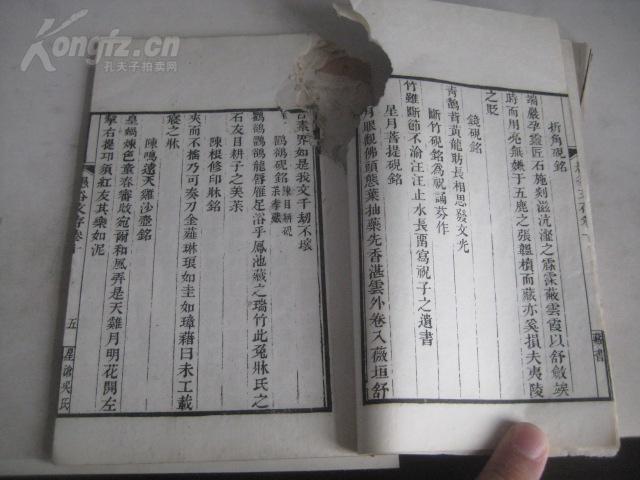 折角硯銘
端嚴孕靈匠石施刻滋沆瀣之霡霂蔽雲霞以舒斂
時而用光無嫌于五鹿之張韞櫝而藏亦奚損夫夷陵
之貶
鏡硯銘
青鸐背黃龍肪長相思發文光
斷竹硯銘為祝誦芬作
竹雖斷節不渝注汪止水長畱寫祝子之遺書
星月菩提硯銘
月眼觀佛頭態葉抽槳先香湛雲外卷入薇垣舒
素界如是我文千刼不壞
鸜鵒硯銘 陳目耕硯 某孝藏
鸜鵒鸜鵒龍脣雁足浴乎鳳池藏之瑞竹此冤牀氏之
石友目耕子之美茶
陳根修印牀銘
夾而不擣乃可奏乃全薤琳琅如圭如璋藉曰未工載
寢之牀
陳鳴遠天雞沙壺銘
皇媧煉色童春審啟宛爾和風弄是天雞月明花開左
挈右提功須紅友其樂如泥
五
Kongfz.cn
孔夫子拍卖网